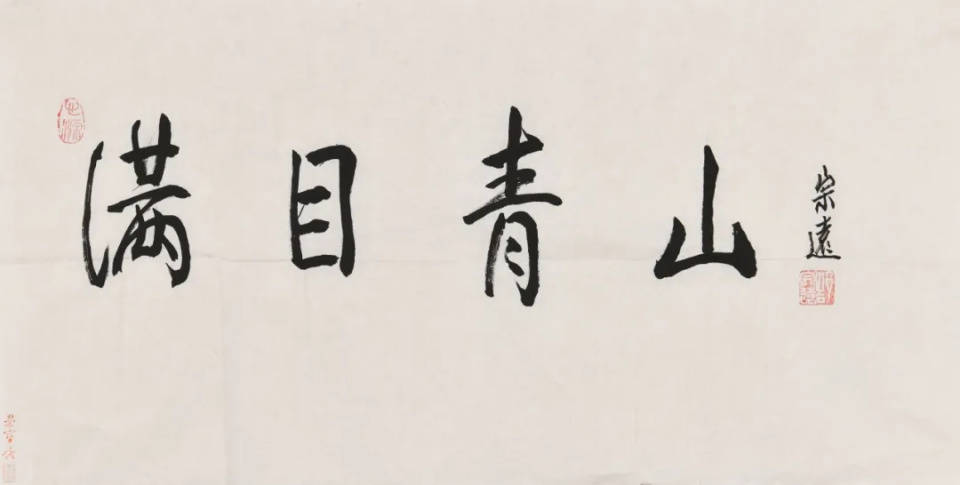 满目青山
宗遠